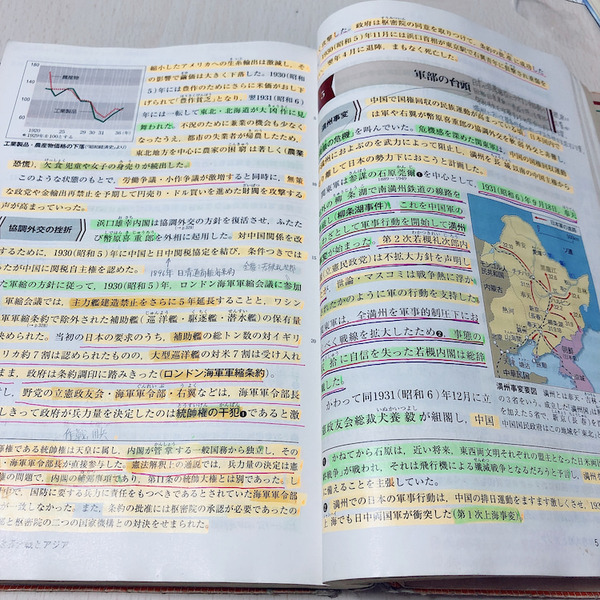 180
160
140
120
100
80
60
農産物
工業製品
1920
25
28
31
34
36(年)
*1920年を100とする
工業製品・農産物価格の下落
縮小したアメリカへの生糸輸出は激減し、そ
の影響で繭価は大きく下落した。1930(昭和
5)年には豊作のためにさらに米価がおし下
げられて「豊作貧乏」となり、翌1931(昭和6)
年には一転して東北・北海道が大凶作に見
舞われた。不況のために兼業の機会も少なく
なったうえ、都市の失業者が帰農したため、
東北地方を中心に農家の困窮は著しく(農業
恐慌)、欠食児童や女子の身売りが続出した。
このような状態のもとで、労働争議・小作争議が激増すると同時に、無策
な政党や金輸出再禁止を予期して円売り・ドル買いを進めた財閥を攻撃する
声が高まっていった。
協調外交の挫折
浜口雄幸内閣は協調外交の方針を復活させ、ふたた
び幣原喜重郎を外相に起用した。対中国関係を改
するために、1930(昭和5)年に中国と日中関税協定を結び、条件つきでは
ったが中国に関税自主権を認めた。
軍縮の方針に従って、1930(昭和5)年、ロンドン海軍軍縮会議に参加
軍縮会議では、主力艦建造禁止をさらに5年延長することと、ワシン
軍縮条約で除外された補助艦(巡洋艦・駆逐艦・潜水艦)の保有量
決められた。当初の日本の要求のうち、補助艦の総トン数の対イギリ
リカ約7割は認められたものの、大型巡洋艦の対米7割は受け入れ
まま、政府は条約調印に踏みきった(ロンドン海軍軍縮条約)。
し、野党の立憲政友会・海軍軍令部・右翼などは、海軍軍令部長
しきって政府が兵力量を決定したのは統帥権の干犯❶であると激
権である統帥権は天皇に属し、内閣が管掌する一般国務から独立し、その
・海軍軍令部長が直接参与した。憲法解釈上の通説では、兵力量の決定は憲
権の問題で、内閣の輔弼事項であり、第11条の統帥大権とは別であった。
中で、国防に要する兵力に責任をもつべきであるとされていた海軍軍令部
が一致しなかった。また、条約の批准には枢密院の承認が必要であったの
と枢密院の二つの国家機関との対決をせまられた。
とアジア
撃した。政府は枢密院の同意を取りつけて、条約の批准に成功した
が、1930(昭和5)年11月には浜口首相が東京駅で右翼青年に狙撃されて重
、翌年4月に退陣、まもなく死亡した。
5
軍部の台頭
満州事変
中国で国権回収の民族運動が高まっている頃、日本国内で
は軍や右翼が幣原喜重郎の協調外交を軟弱外交と非難
の危機」を叫んでいた。危機感を深めた関東軍は、中国の国権回収運動
州におよぶのを武力によって阻止し、満州を長城以南の中国主権から
離して日本の勢力下におこうと計画した。
東軍は参謀の石原莞爾❶を中心として、1931(昭和6)年9月18日、奉天
の柳条湖で南満州鉄道の線路を
し(柳条湖事件)、これを中国軍の
として軍事行動を開始して満州
変が始まった。第2次若槻礼次郎内
立憲民政党)は不拡大方針を声明し
が、世論・マスコミは戦争熱に浮か
たかのように軍の行動を支持した。
東軍は、全満州を軍事的制圧下にお
べく戦線を拡大したため❷、事態の
拾に自信を失った若槻内閣は総辞
した。
かわって同1931(昭和6)年12月に立
政友会総裁犬養毅が組閣し、中国
満州事変要図
中華民国
かねてから石原は、近い将来、東西両文明それぞれの盟主となった日米両国
戦争」が戦われ、それは飛行機による殲滅戦争となるだろうと予測し、満州を
に備えることを主張していた。
満州での日本の軍事行動は、中国の排日運動をますます激しくさせ、193
上海でも日中両国軍が衝突した(第1次上海事変)。